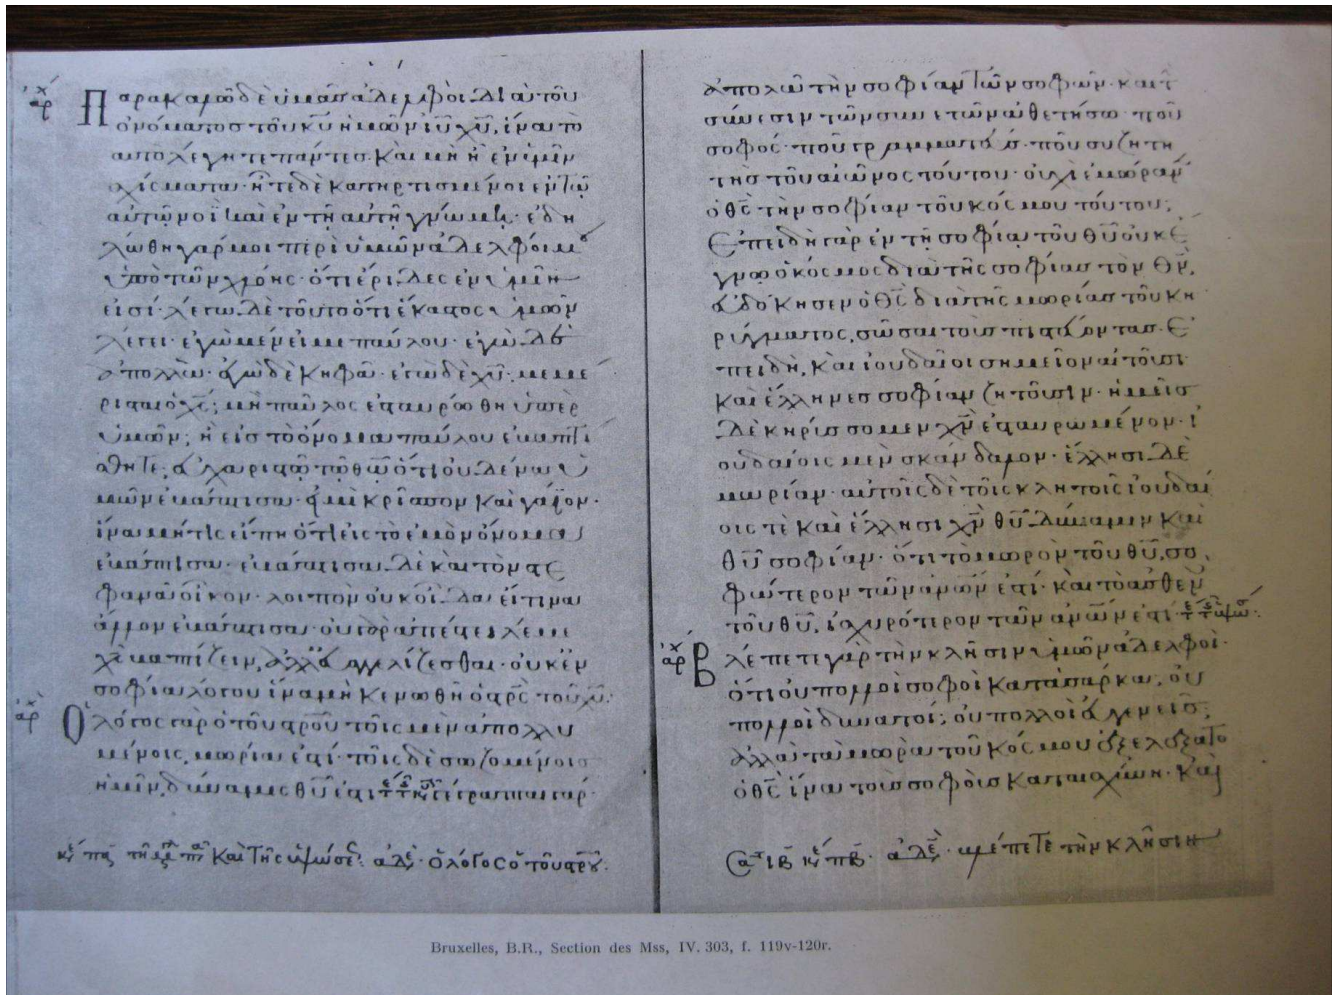 ἀρχ
Παρακαλῶ δὲ ὑμᾶς ἀδελφοί· διὰ τοῦ
ὀνόματος τοῦ κυ ἡμῶν ιυ χυ, ἵνα το
αυτο λέγητε πάντες· καὶ μὴ ἦ ἐν ὑμῖν
σχίσματα· ἦτε δὲ κατηρτισμένοι ἐν τῷ
αὐτῷ νοῒ καὶ ἐν τῇ αὐτῇ γνώμῃ· ἐδη
λώθη γάρ μοι περὶ ὑμῶν ἀδελφοί μου
ὑπὸ τῶν χλόης· ὅτι ἔριδες ἐν ὑμῖν
εἰσί· λέγω δὲ τοῦτο ὅτι ἕκαστος ὑμῶν
λέγει· ἐγὼ μέν εἰμι παύλου· ἐγὼ δὲ
ἀπολλώ· ἐγὼ δὲ κηφᾶ· ἐγὼ δὲ χυ· μεμέ
ρισται ὁ χς; μὴ παῦλος ἐσταυρώθη ὑπὲρ
ὑμῶν; ἢ εἰς τὸ ὄνομα παύλου ἐβαπτί
σθητε; εὐχαριστῶ τῷ θω ὅτι οὐδένα ὑ
μῶν ἐβάπτισα· εἰ μὴ κρίσπον καὶ γάϊον·
ἵνα μή τις εἴπῃ ὅτι εἰς τὸ ἐμὸν ὄνομα
ἐβάπτισα· ἐβάπτισα δὲ καὶ τὸν στε
φανᾶ οἶκον· λοιπὸν οὐκ οἶδα εἴ τινα
ἄλλον ἐβάπτισα· οὐ γὰρ ἀπέστειλέ με
χς βαπτίζειν, ἀλλ' εὐαγγελίζεσθαι· οὐκ ἐν
σοφία λόγου ἵνα μὴ κενωθῇ ὁ σρς τοῦ χυ·
ἀρχ
Ὁ λόγος γὰρ ὁ τοῦ σρου τοῖς μὲν ἀπολλυ
μένοις, μωρία ἐστί· τοῖς δὲ σωζομένοις
ἡμῖν, δύναμις θυ ἐστι γέγραπται γάρ·
καὶ τῆς ὑψώσε ἀδε· ὁ λόγος ὁ τοῦ σρου·
ἀπολῶ τὴν σοφίαν τῶν σοφῶν· καὶ τ
σύνεσιν τῶν συνετῶν ἀθετήσω· ποῦ
σοφός· ποῦ γραμματεύς· ποῦ συζητη
τὴς τοῦ αἰῶνος τούτου· οὐχὶ ἐμώραν
ὁ θς τὴν σοφίαν τοῦ κόσμου τούτου;
Ἐπειδὴ γὰρ ἐν τῇ σοφία τοῦ θυ οὐκ ἔ
γνω ὁ κόσμος διὰ τῆς σοφίας τὸν θν,
εὐδόκησεν ὁ θς διὰ τῆς μωρίας τοῦ κη
ρύγματος, σῶσαι τοὺς πιστεύοντας· ἐ
πειδὴ, καὶ ἰουδαῖοι σημεῖον αἰτοῦσι
καὶ ἕλληνες σοφίαν ζητοῦσιν· ἡμεῖς
δὲ κηρύσσομεν χν ἐσταυρωμένον· ἰ
ουδαίοις μὲν σκάνδαλον· ἕλλησι δὲ
μωρίαν· αὐτοῖς δὲ τοῖς κλητοῖς ἰουδαί
οις τὲ καὶ ἕλλησι χν θυ δύναμιν καὶ
θυ σοφίαν· ὅτι τὸ μωρὸν τοῦ θυ, σο
φώτερον τῶν ανων ἐστί· καὶ τὸ ἀσθεν
τοῦ θυ, ἰσχυρότερον τῶν ανων ἐστί
ἀρχ
Βλέπετε γὰρ τὴν κλῆσιν ὑμῶν ἀδελφοί·
ὅτι οὐ πολλοὶ σοφοὶ κατὰ σάρκα· οὐ
πολλοὶ δυνατοί· οὐ πολλοὶ εὐγενεῖς·
ἀλλὰ τὰ μωρὰ τοῦ κόσμου ἐξελέξατο
ὁ θς ἵνα τοὺς σοφοὺς καταισχύνῃ· καὶ
Σα ιβ ἀδε· βλέπετε τὴν κλῆσιν
Bruxelles, B.R., Section des Mss, IV. 303, f. 119v-120r.